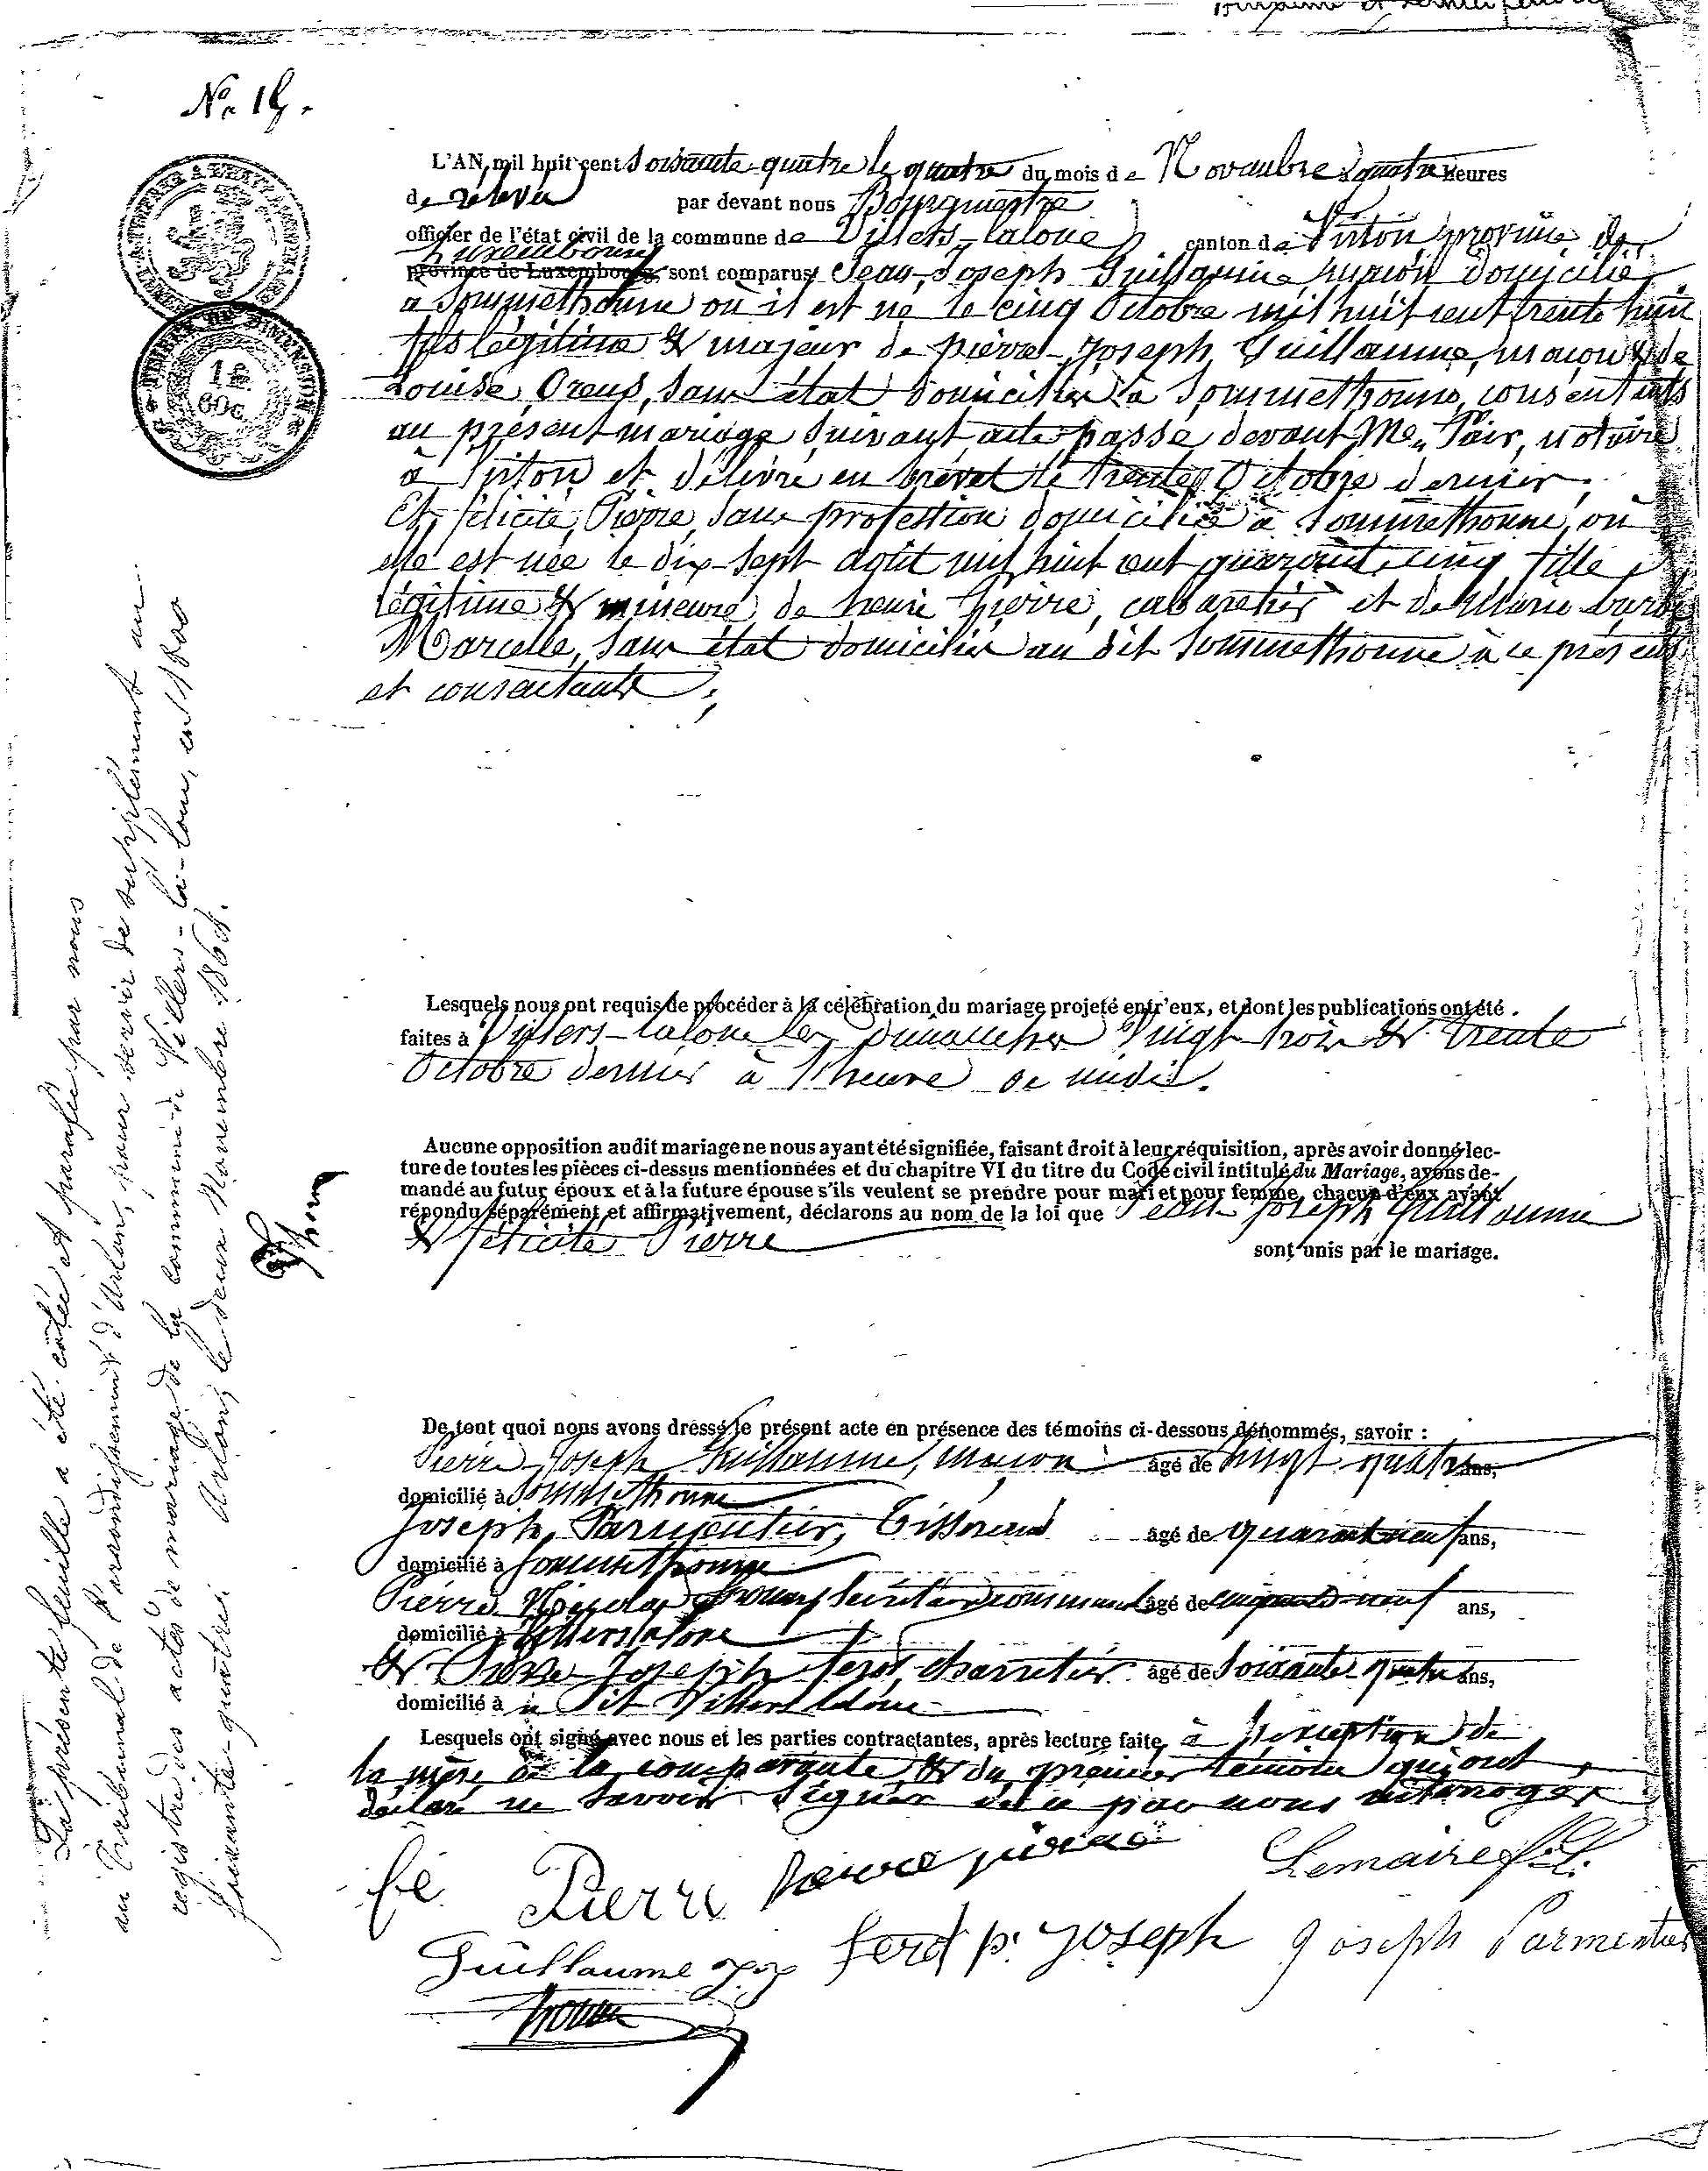 N° 15.
L'AN mil huit cent soixante-quatre le quatre du mois de Novembre à quatre heures
de relevée par devant nous Bourgmestre
officier de l'état civil de la commune de Villers-laloue canton de Virton province de
Luxembourg
province de Luxembourg, sont comparus Jean-Joseph Guillaume maçon domicilié
à Sommethonne où il est né le cinq Octobre mil huit cent trente huit
fils légitime & majeur de pierre-Joseph Guillaume, maçon & de
Louise, sans état domiciliés à Sommethonne, consentants
au présent mariage suivant acte passé devant Me notaire
à Virton et délivré en brévet le trente Octobre dernier;
Et félicité Pierre, sans profession domiciliée à Sommethonne, où
elle est née le dix-sept août mil huit cent quarante cinq fille
légitime & mineure de henri Pierre, cabaretier et de Marie barbe
Marcelle, sans état domiciliés au dit Sommethonne à ce présents
et consentants;
Lesquels nous ont requis de procéder à la célébration du mariage projeté entr'eux, et dont les publications ont été
faites à Villers-laloue les dimanches vingt trois & trente
Octobre dernier à l'heure de midi.
Aucune opposition audit mariage ne nous ayant été signifiée, faisant droit à leur réquisition, après avoir donné lec-
ture de toutes les pièces ci-dessus mentionnées et du chapitre VI du titre du Code civil intitulé du Mariage, avons de-
mandé au futur époux et à la future épouse s'ils veulent se prendre pour mari et pour femme, chacun d'eux ayant
répondu séparément et affirmativement, déclarons au nom de la loi que Jean Joseph Guillaume
& félicité Pierre
sont unis par le mariage.
De tout quoi nous avons dressé le présent acte en présence des témoins ci-dessous dénommés, savoir :
Pierre Joseph Guillaume, maçon âgé de vingt quatre ans,
domicilié à Sommethonne
Joseph Parmentier, Tisserand âgé de quarante neuf ans,
domicilié à Sommethonne
Pierre Nicolas secrétaire communal âgé de cinquante-neuf ans,
domicilié à Villerslaloue
& Pierre-Joseph ferot, charretier âgé de soixante quatre ans,
domicilié à au dit Villers laloue
Lesquels ont signé avec nous et les parties contractantes, après lecture faite, à l'exception de
la mère de la comparante & du premier témoin qui ont
déclaré ne savoir signer de ce par nous interrogés
fé Pierre pierre
Lemaire
Guillaume J.J. ferot p. Joseph Joseph Parmentier
La présente feuille a été cotée et parafée par nous
au Tribunal de l'arrondissement d'Arlon, pour servir de supplément au
registre des actes de mariage de la commune de Villers-la-loue, en 1800
soixante-quatre. Arlon, le deux Novembre 1864.